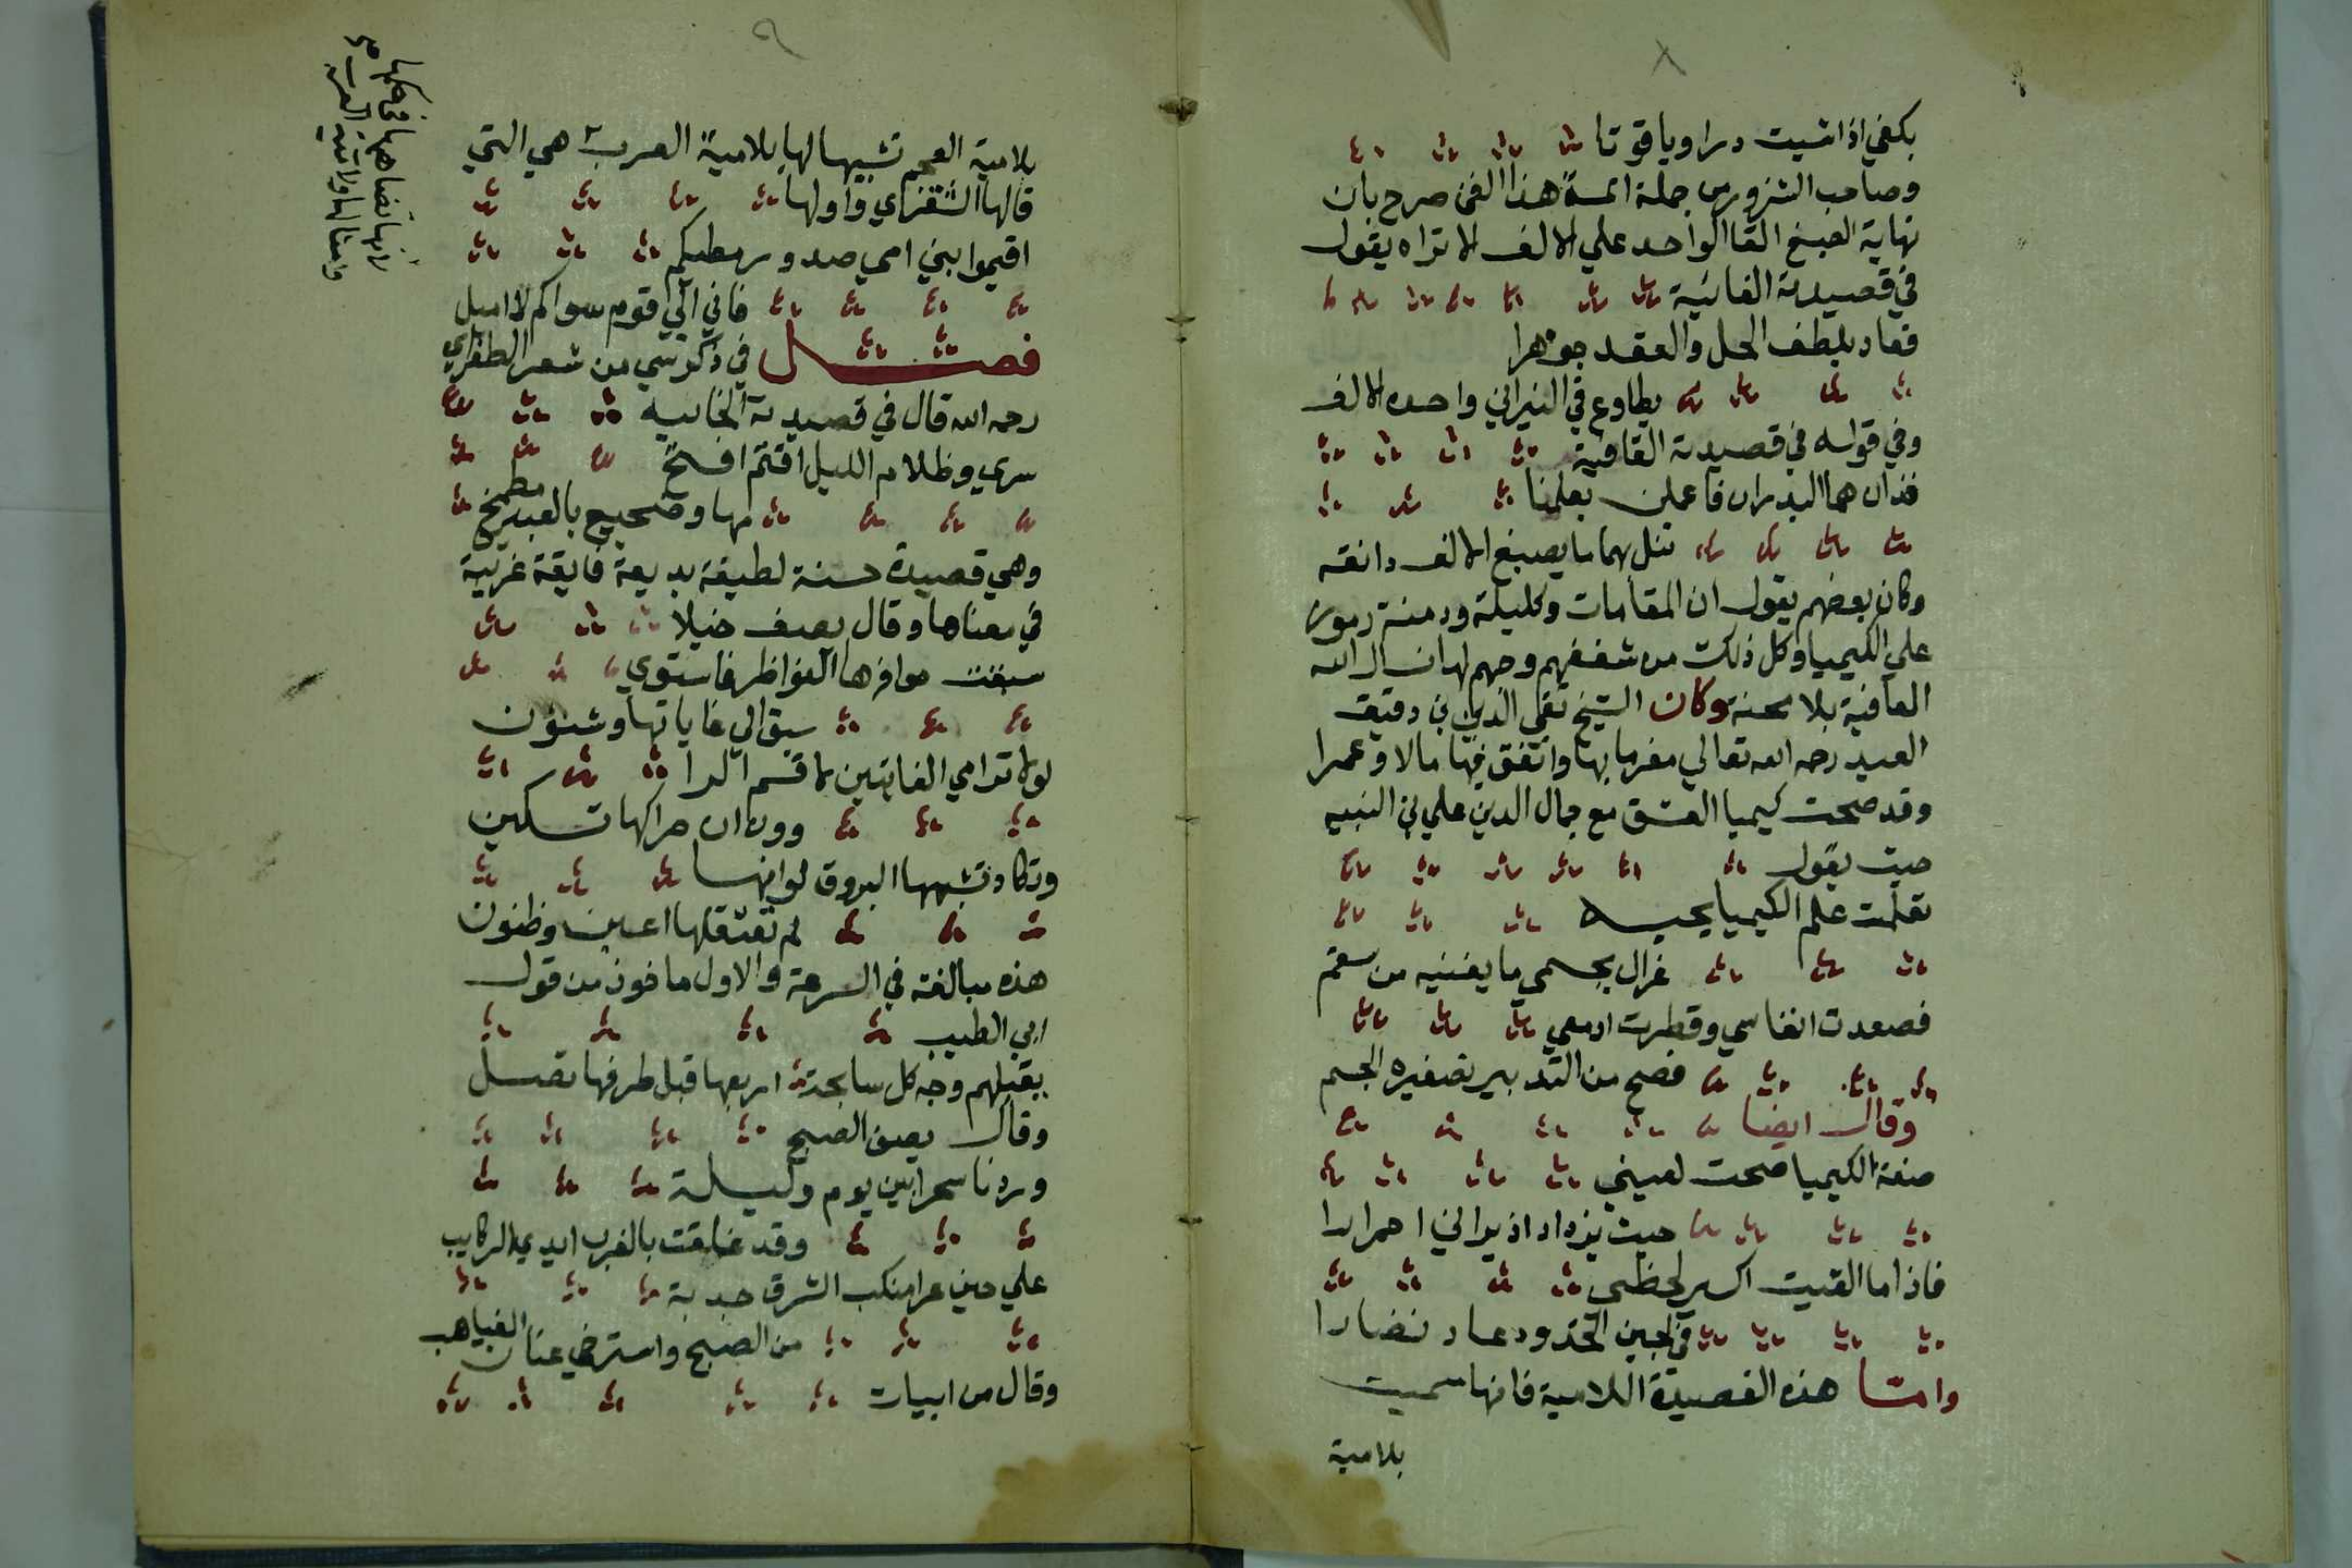 ٨
بكفي اذا شيت درا وياقوتا
وصاحب الشزور من جملة ائمة هذا الفن صرح بان
نهاية الصبغ القا الواحد علي الالف الا تراه يقول
في قصيدته الفائية
فعاد بلطف الحل والعقد جوهرا
يطاوع في النيران واحده الالف
وفي قوله في قصيدته القافية
فذان هما البدران فاعلن بعلمنا
تنل بهما ما يصبغ الالف دانقه
وكان بعضهم يقول ان المقامات وكليلة ودمنة رموز
علي الكيميا وكل ذلك من شغفهم وحبهم لها نسال الله
العافية بلا محنة وكان الشيخ تقي الدين بن دقيق
العيد رحمه الله تعالي مغرما بها وانفق فيها مالا وعمرا
وقد صحت كيميا العشق مع جمال الدين علي بن النبيه
حيث يقول
تعلمت علم الكيميا بحبه
غزال بجسمي ما بعينيه من سقم
فصعدت انفاسي وقطرت ادمعي
فصح من التدبير تصفيره الجسم
وقال ايضا
صنعة الكيميا صحت لعيني
حيث يزداد اذ يراني احمرارا
فاذا ما القيت اكسير لحظي
في لجين الخدود عاد نضارا
واما هذه القصيدة اللامية فانها سميت
بلامية
٩
بلامية العجم تشبيها لها بلامية العرب هي التي
قالها الشنفراي واولها
اقيموا بني امي صدور مطيكم
فاني الي قوم سواكم لا اميل
فصل في ذكر شي من شعر الطغراي
رحمه الله قال في قصيدته الخائيه
سري وظلام الليل اقتم افتخ
مها وضجيع بالعبير مطبخ
وهي قصيدة حسنة لطيفة بديعة فايقة غريبة
في معناها وقال يصف خيلا
سبقت حوافرها النواظر فاستوي
سبق الي غاياتها وشئون
لولا ترامي الغايتين لاقسم الرا
وون ان حراكها تسكين
وتكاد تشبهها البروق لو انها
لم تعتقلها اعين وظنون
هذه مبالغة في السرعة والاول ماخوذ من قول
ابي الطيب
يقبلهم وجه كل سابحة اربعها قبل طرفها تصل
وقال يصف الصبح
وردنا سحرا بين يوم وليلة
وقد علقت بالغرب ايدي الركايب
علي حين عرا منكب الشرق جذبة
من الصبح واسترخي عنان الغياهب
وقال من ابيات